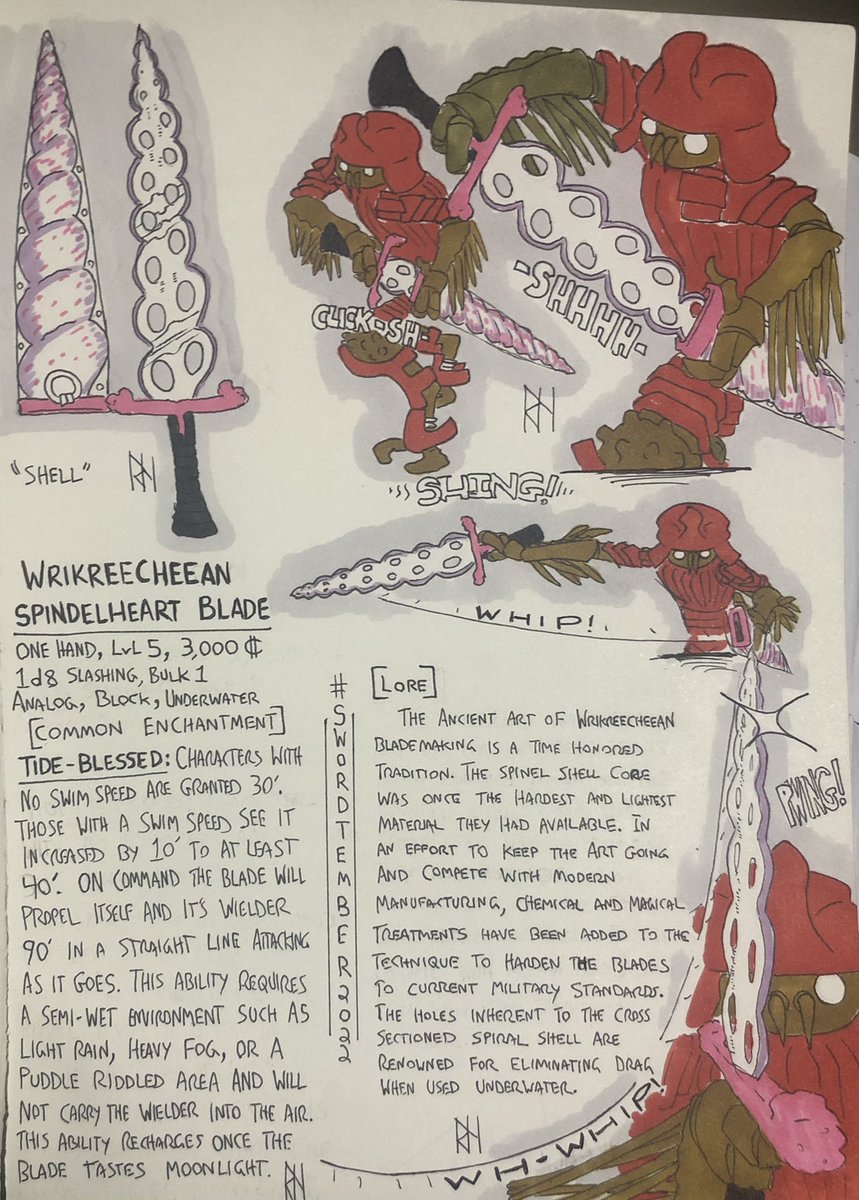 "SHELL"
CLICK-SH
-SHHHH-
SHING!
WHIP!
PWING!
WH-WHIP!
WRIKREECHEEAN
SPINDELHEART BLADE
ONE HAND, LVL 5, 3,000 ₵
1d8 SLASHING, BULK 1
ANALOG, BLOCK, UNDERWATER
[COMMON ENCHANTMENT]
TIDE-BLESSED: CHARACTERS WITH
NO SWIM SPEED ARE GRANTED 30'.
THOSE WITH A SWIM SPEED SEE IT
INCREASED BY 10' TO AT LEAST
40'. ON COMMAND THE BLADE WILL
PROPEL ITSELF AND IT'S WIELDER
90' IN A STRAIGHT LINE ATTACKING
AS IT GOES. THIS ABILITY REQUIRES
A SEMI-WET ENVIRONMENT SUCH AS
LIGHT RAIN, HEAVY FOG, OR A
PUDDLE RIDDLED AREA AND WILL
NOT CARRY THE WIELDER INTO THE AIR.
THIS ABILITY RECHARGES ONCE THE
BLADE TASTES MOONLIGHT.
#SWORDTEMBER2022
[LORE]
THE ANCIENT ART OF WRIKREECHEEAN
BLADEMAKING IS A TIME HONORED
TRADITION. THE SPINEL SHELL CORE
WAS ONCE THE HARDEST AND LIGHTEST
MATERIAL THEY HAD AVAILABLE. IN
AN EFFORT TO KEEP THE ART GOING
AND COMPETE WITH MODERN
MANUFACTURING, CHEMICAL AND MAGICAL
TREATMENTS HAVE BEEN ADDED TO THE
TECHNIQUE TO HARDEN THE BLADES
TO CURRENT MILITARY STANDARDS.
THE HOLES INHERENT TO THE CROSS
SECTIONED SPIRAL SHELL ARE
RENOWNED FOR ELIMINATING DRAG
WHEN USED UNDERWATER.